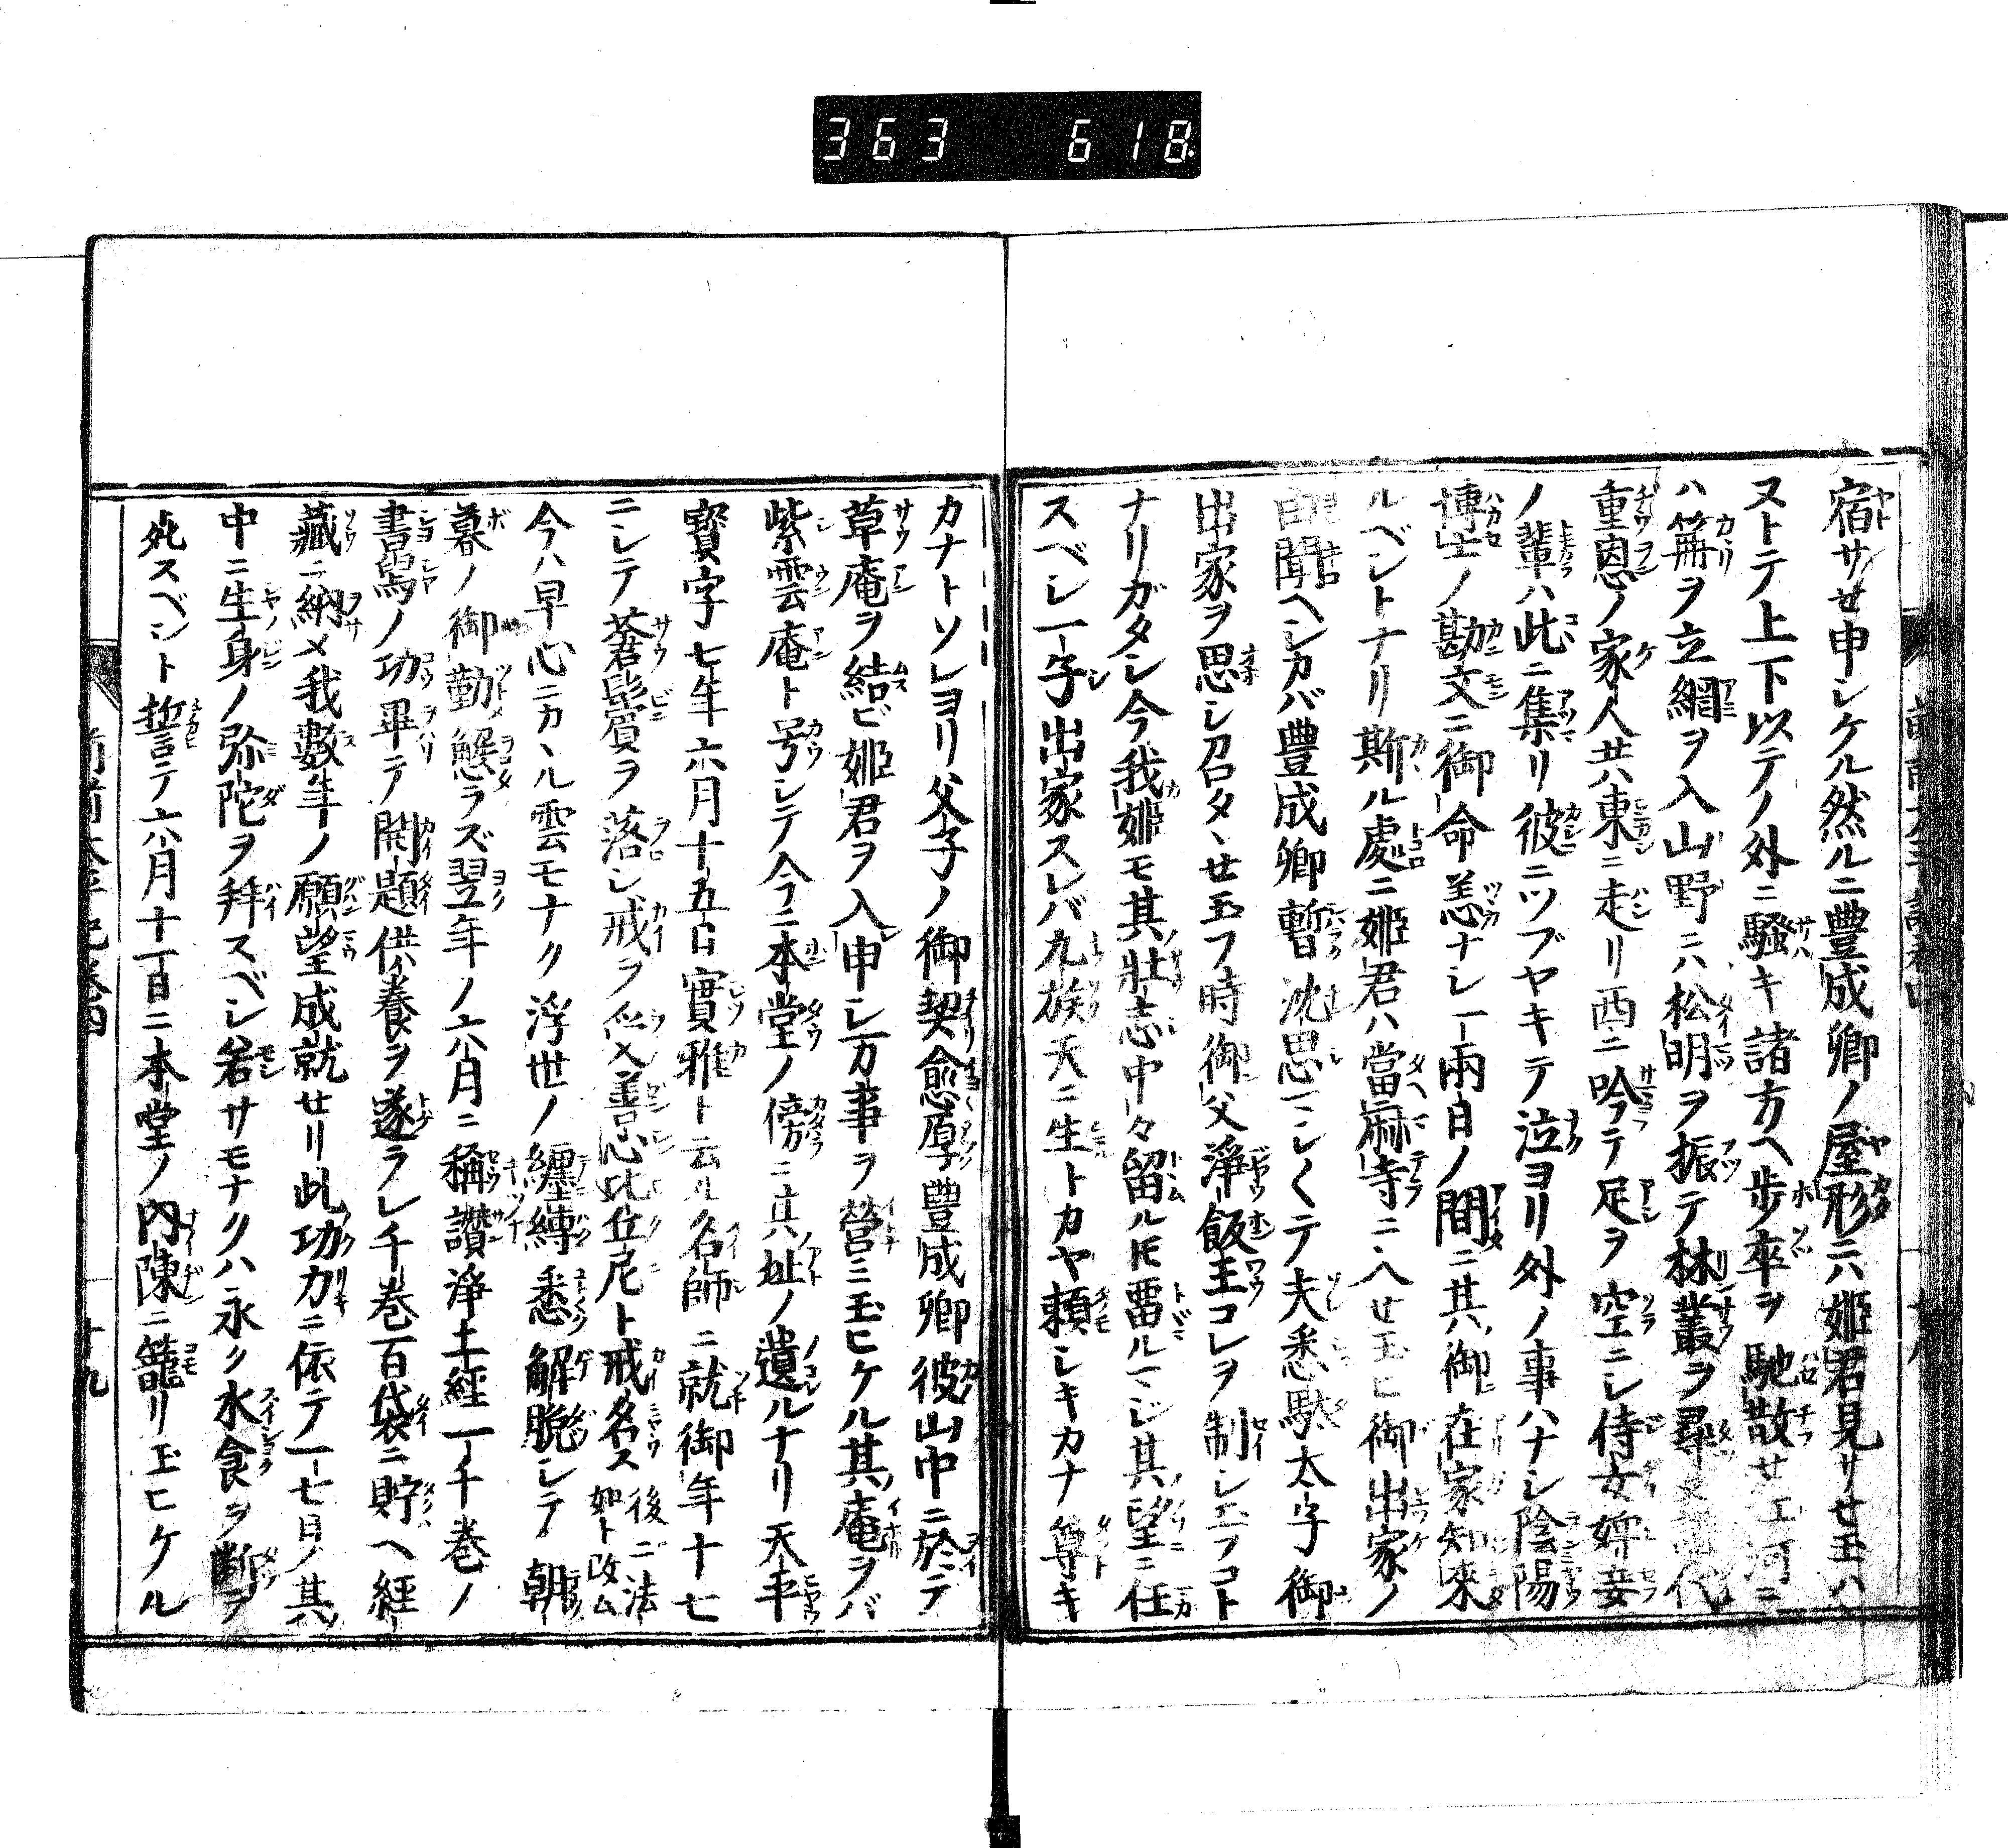 363 618
宿サセ申シケル然ルニ豊成卿ノ屋形ニハ姫君見サセ玉ハ
ヌトテ上下以テノ外ニ騒キ諸方ヘ歩卒ヲ馳散サセ江河ニ
ハ箄ヲ立網ヲ入山野ニハ松明ヲ振テ林叢ヲ尋又譜代
重恩ノ家人共ハ東ニ走リ西ニ吟テ足ヲ空ニシ侍女婢妾
ノ輩ハ此ニ集リ彼ニツブヤキテ泣ヨリ外ノ事ハナシ陰陽
博士ノ勘文ニ御命恙ナシ一両日ノ間ニ其御在家知来
ルベシトナリ斯ル處ニ姫君ハ當麻寺ニ入セ玉ヒ御出家ノ
由聞ヘシカバ豊成卿暫沈思シクテ夫悉駄太子御
出家ヲ思シ召タヽセ玉フ時御父淨飯王コレヲ制シ玉フコト
ナリガタシ今我姫モ其壯志中々留ルトモ畱ルマジ其望ニ任
スベシ一子出家スレバ九族天ニ生トカヤ頼シキカナ尊キ
カナトソレヨリ父子ノ御契愈厚豊成卿彼山中ニ於テ
草庵ヲ結ビ姫君ヲ入申シ万事ヲ營ミ玉ヒケル其庵ヲバ
紫雲庵ト号シテ今ニ本堂ノ傍ニ其址ノ遺ルナリ天平
寳字七年六月十五日實雅ト云ル名師ニ就御年十七
ニシテ蒼鬢ヲ落シ戒ヲ受善心比丘尼ト戒名ス後ニ法如ト改ム
今ハ早心ニカヽル雲モナク浮世ノ纏縛悉解脱シテ朝
暮ノ御勤懈ラズ翌年ノ六月ニ稱讃淨土經一千巻ノ
書冩ノ功畢テ開題供養ヲ遂ラレ千巻百袋ニ貯ヘ經
藏ニ納メ我數年ノ願望成就セリ此功力ニ依テ一七日ノ其
中ニ生身ノ弥陀ヲ拜スベシ若サモナクハ永ク水食ヲ断テ
死スベシト誓テ六月十一日ニ本堂ノ内陳ニ籠リ玉ヒケル
十九